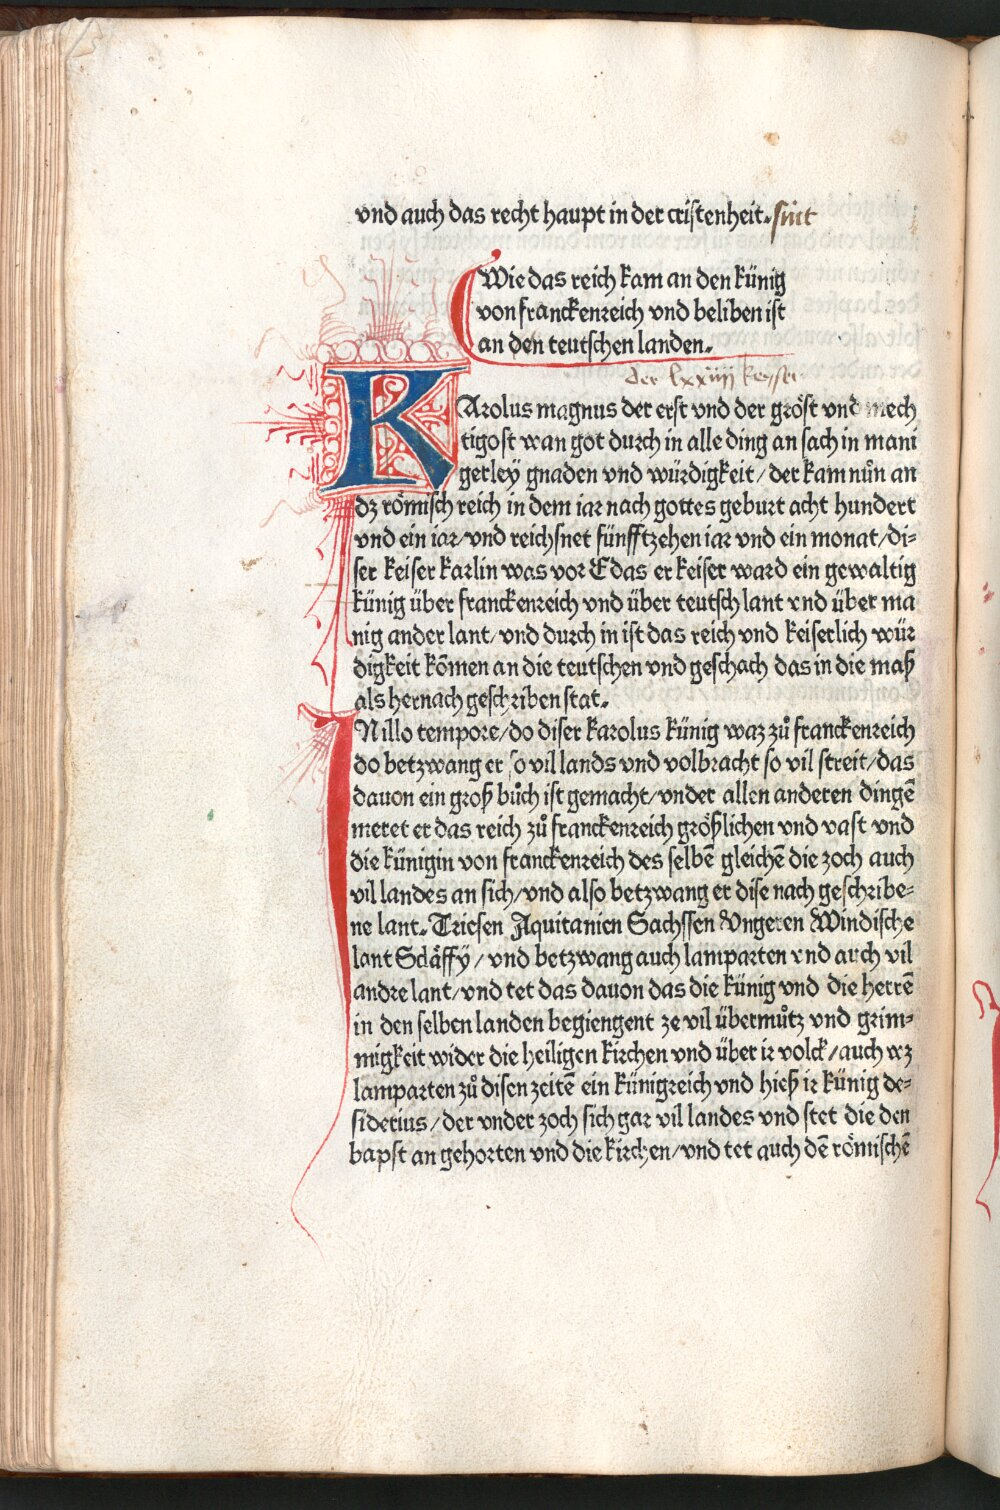 vnd auch das recht haupt in der cristenheit. sint
Wie das reich kam an den künig
von franckenreich vnd beliben ist
an den teutschen landen.
der lxxiiij keyser
KArolus magnus der erst vnd der gröst vnd mech
tigost wan got durch in alle ding an sach in mani
gerley gnaden vnd würdigkeit/ der kam nůn an
dz römisch reich in dem iar nach gottes geburt acht hundert
vnd ein iar/ vnd reichsnet fünfftzehen iar vnd ein monat/ di-
ser keiser karlin was vor E das er keiser ward ein gewaltig
künig über franckenreich vnd über teutsch lant vnd über ma
nig ander lant/ vnd durch in ist das reich vnd keiserlich wür
digkeit kōmen an die teutschen vnd geschach das in die maß
als hernach geschriben stat.
INillo tempore/ do diser karolus künig waz zů franckenreich
do betzwang er so vil lands vnd volbracht so vil streit/ das
dauon ein groß bůch ist gemacht/ vnder allen anderen dingē
meret er das reich zů franckenreich größlichen vnd vast vnd
die künigin von franckenreich des selbē gleichē die zoch auch
vil landes an sich/ vnd also betzwang er dise nach geschribe-
ne lant. Triesen Aquitanien Sachssen Vngeren Windische
lant Schäffy/ vnd betzwang auch lamparten vnd auch vil
andre lant/ vnd tet das dauon das die künig vnd die herrē
in den selben landen begiengent ze vil übermůtz vnd grim-
migkeit wider die heiligen kirchen vnd über ir volck/ auch wz
lamparten zů disen zeitē ein künigreich vnd hieß ir künig de-
siderius/ der vnder zoch sich gar vil landes vnd stet die den
bapst an gehorten vnd die kirchen/ vnd tet auch dē römischē